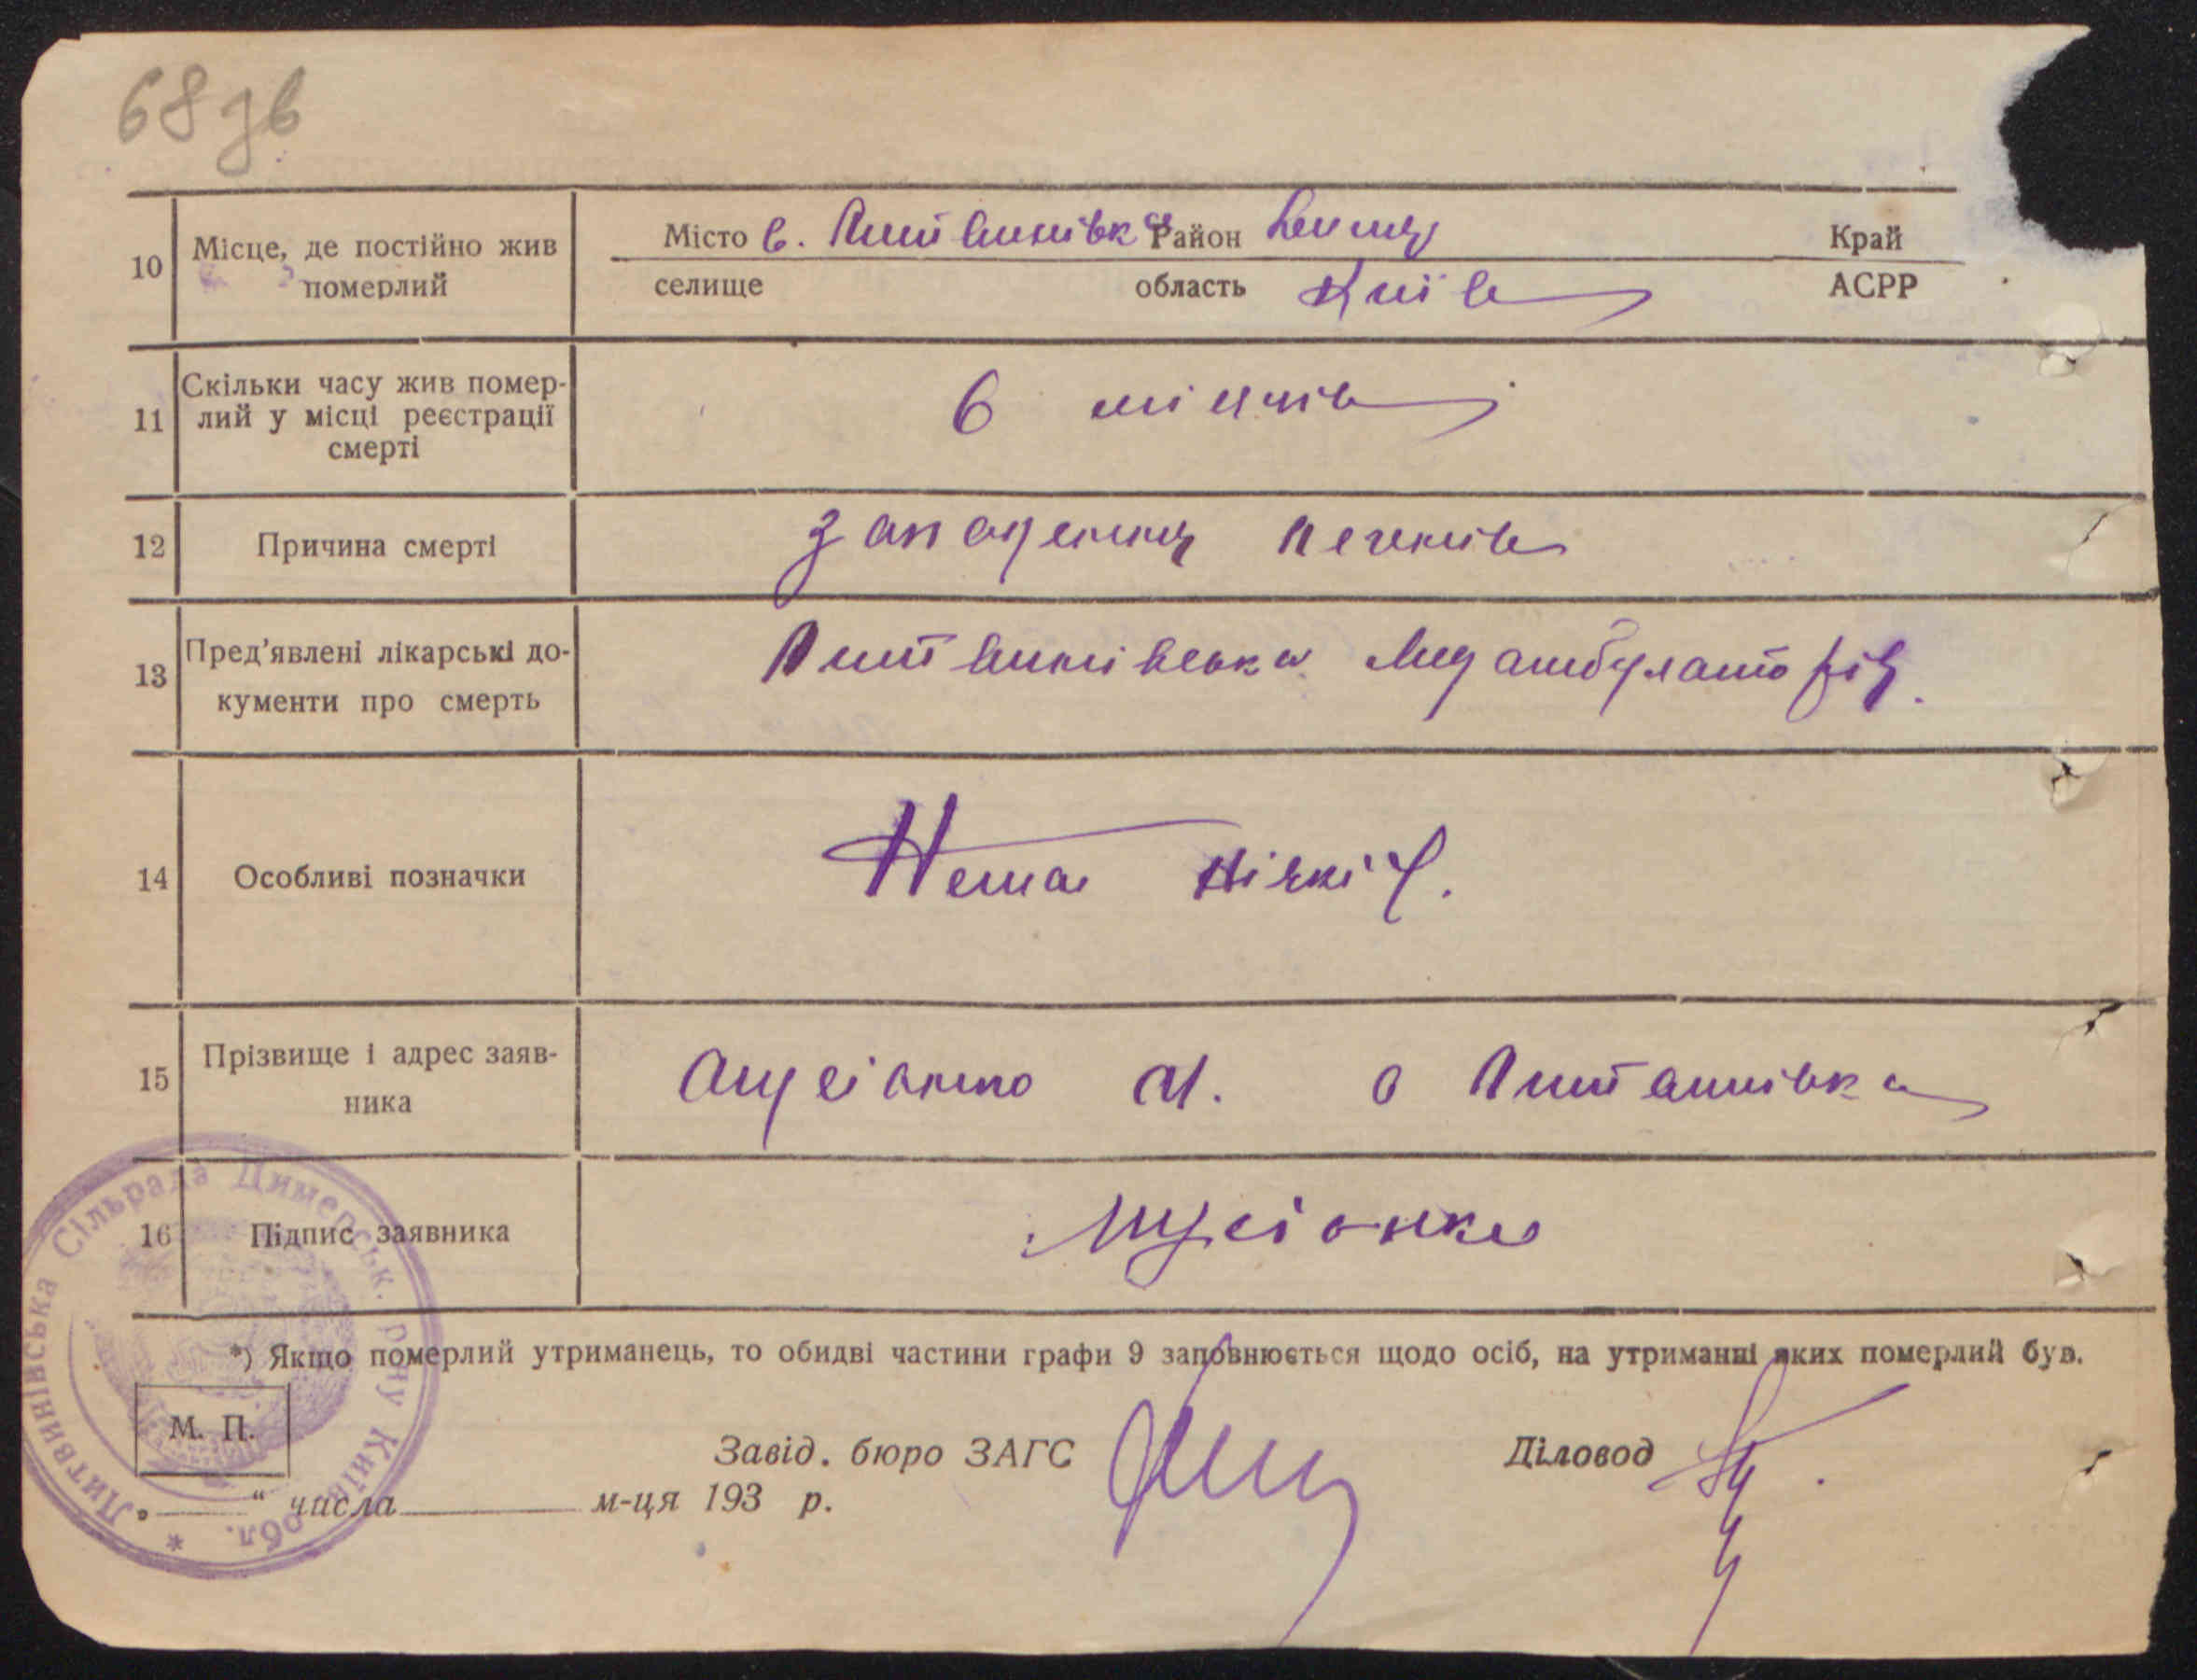 68 зв
10 Місце, де постійно жив померлий
Місто с. Литвинівка Район
Край
селище область Київ
АСРР
11 Скільки часу жив помер-
лий у місці реєстрації
смерті
6 місяців
12 Причина смерті
запалення легенів
13 Пред'явлені лікарські до-
кументи про смерть
Литвинівська амбулаторія.
14 Особливі позначки
Нема ніяких.
15 Прізвище і адрес заяв-
ника
с Литвинівка
16 Підпис заявника
*) Якщо померлий утриманець, то обидві частини графи 9 заповнюється щодо осіб, на утриманні яких померлий був.
М. П.
Завід. бюро ЗАГС
Діловод
„ “ числа м-ця 193 р.
Литвинівська Сільрада Димерськ. р-ну Київ. обл. *